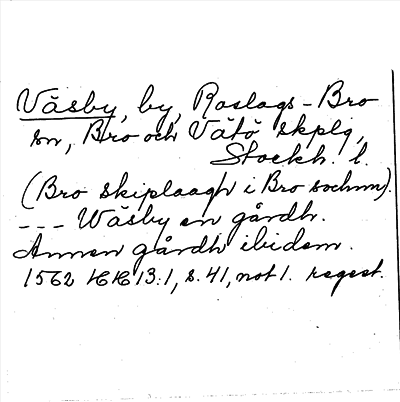 Väsby, by, Roslags-Bro
sn, Bro och Vätö skplg,
Stockh. l.
(Bro skiplaagh i Bro sochnn).
--- Wäsby en gårdh.
Annen gårdh ibidem.
1562 HH 13:1, s. 41, not 1. regest.